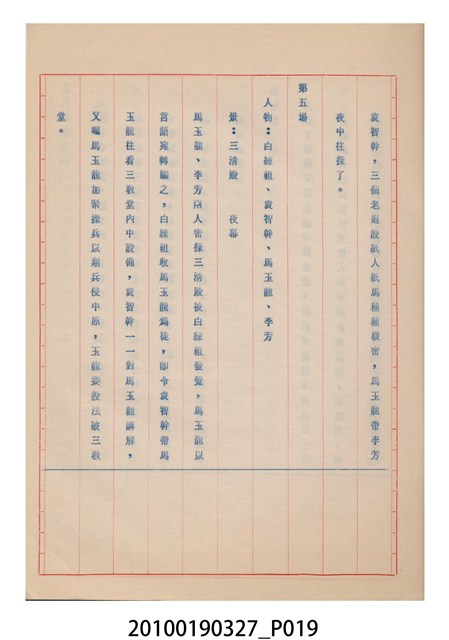 袁智幹，三個老道說紙人紙馬種種機密，馬玉龍帶李芳
夜中往探了。
第五場
人物：白練祖、袁智幹、馬玉龍、李芳
景：三清殿　夜幕
馬玉龍、李芳兩人密探三清殿被白練祖發覺，馬玉龍以
言語宛轉騙之，白練祖收馬玉龍為徒，即令袁智幹帶馬
玉龍往看三教堂內中設備，袁智幹一一對馬玉龍講解，
又囑馬玉龍加緊操兵以期兵侵中原，玉龍要設法破三教
堂。
20100190327_P019